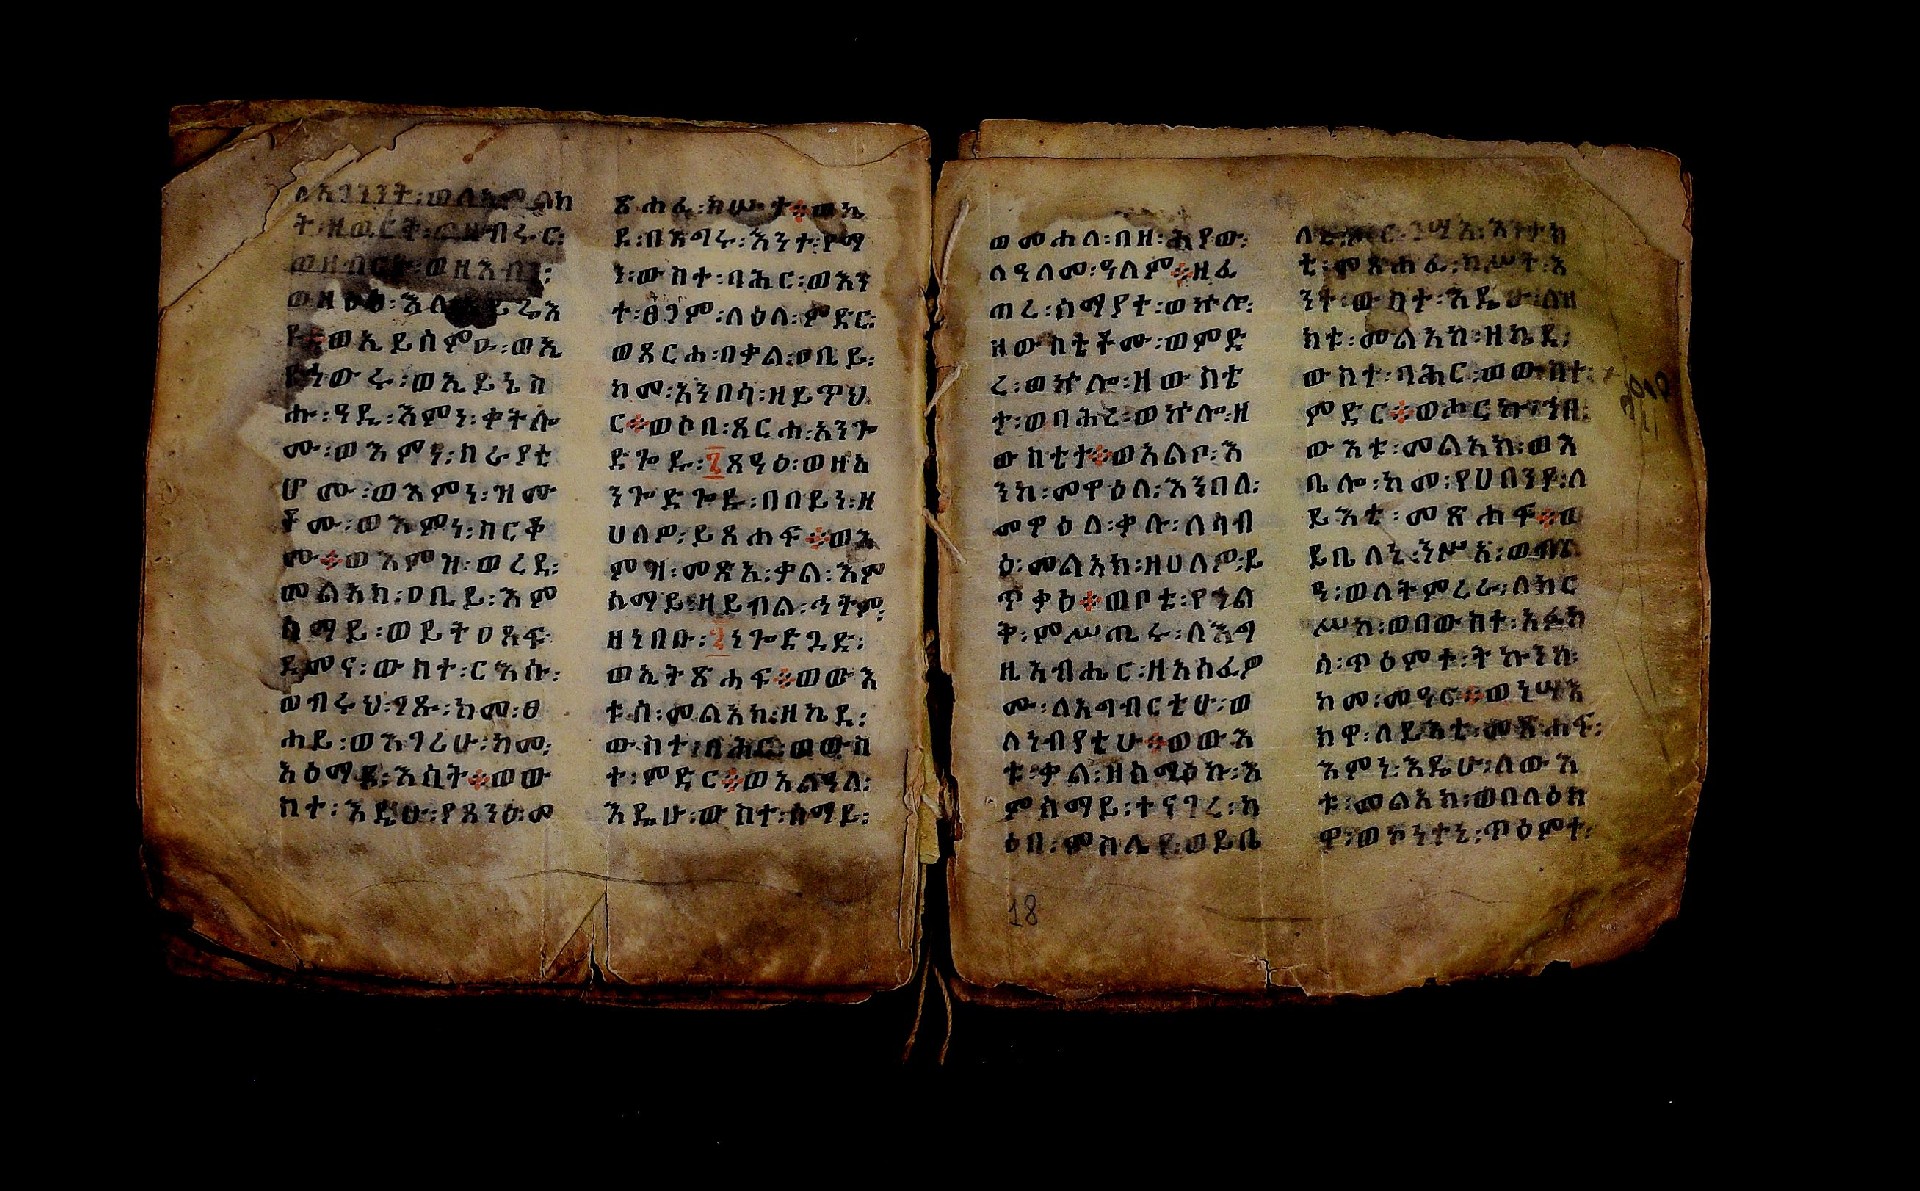 ለአጋንንት፡ወለአምልክ
ት፡ዘወርቅ፡ወዘብሩር፡
ወዘብርት፡ወዘእብን፡
ወዘዕፅ፡እለ፡ኢይሬእ
ዩ፡ወኢይሰምዑ፡ወኢ
የሐውሩ፡ወኢይኔስ
ሑ፡ዓዲ፡እምነ፡ቀትሎ
ሙ፡ወእምነ፡ስራያቲ
ሆሙ፡ወእምነ፡ዝሙ
ቶሙ፡ወእምነ፡ስርቆ
ሙ፨ወእምዝ፡ወረደ፡
መልአክ፡ዐቢይ፡እም
ሰማይ፡ወይትዐጸፍ፡
ደመና፡ውስተ፡ርእሱ፡
ወብሩህ፡ገጹ፡ከመ፡ፀ
ሐይ፡ወእገሪሁ፡ከመ፡
አዕማደ፡እሳት፨ወው
ስተ፡እዴሁ፡የጸንዕ፡መ
ጽሐፈ፡ክሡተ፨ወኬ
ደ፡በእግሩ፡እንተ፡የማ
ን፡ውስተ፡ባሕር፡ወእን
ተ፡ፀጋም፡ላዕለ፡ምድር፡
ወጸርሐ፡በቃል፡ዐቢይ፡
ከመ፡አንበሳ፡ዘይጥህ
ር፨ወሶበ፡ጸርሐ፡አንጐ
ድጐዱ፡፯ጸዓዕ፡ወዘአ
ንጐድጐዱ፡በበይነ፡ዘ
ሀለዎ፡ይጸሐፍ፨ወእ
ምዝ፡መጽአ፡ቃል፡እም
ሰማይ፡ዘይብል፡ኅትም፡
ዘነበቡ፡፯ነጐድጓድ፡
ወኢትጽሐፍ፨ወውእ
ቱሰ፡መልአክ፡ዘኬደ፡
ውስተ፡ባሕር፡ወውስ
ተ፡ምድር፨ወአልዓለ፡
እዴሁ፡ውስተ፡ሰማይ፡
ወመሐለ፡በዘ፡ሕያው፡
ለዓለመ፡ዓለም፨ዘፈ
ጠረ፡ሰማያተ፡ወኵሎ፡
ዘውስቲቶሙ፡ወምድ
ረ፡ወኵሎ፡ዘውስቴ
ታ፡ወባሕረ፡ወኵሎ፡ዘ
ውስቲታ፨ወአልቦ፡እ
ንከ፡መዋዕለ፡እንበለ፡
መዋዕለ፡ቃሉ፡ለሳብ
ዕ፡መልአክ፡ዘሀለዎ፡ይ
ጥቃዕ፨ወቦቱ፡የኀል
ቅ፡ምሥጢሩ፡ለእግ
ዚአብሔር፡ዘአስፈዎ
ሙ፡ለአግብርቲሁ፡ወ
ለነቢያቲሁ፨ወውእ
ቱ፡ቃል፡ዘሰማዕኩ፡እ
ምሰማይ፡ተናገረ፡ካ
ዕበ፡ምስሌየ፡ወይቤ
ለኒ፡ሑር፡ንሣእ፡እንታክ
ቲ፡መጽሐፈ፡ክሥት፡እ
ንተ፡ውስተ፡እዴሁ፡ለዝ
ክቱ፡መልአክ፡ዘኬደ፡
ውስተ፡ባሕር፡ወውስተ፡
ምድር፨ወሖርኩ፡ኀበ፡
ውእቱ፡መልአክ፡ወእ
ቤሎ፡ከመ፡የሀበንያ፡ለ
ይእቲ፡መጽሐፍ፨ወ
ይቤለኒ፡ንሥኣ፡ወብል
ዓ፡ወለትምረራ፡ለከር
ሥከ፡ወበውስተ፡አፉከ
ሰ፡ጥዕምተ፡ትኩንከ፡
ከመ፡መዓር፨ወነሣእ
ክዋ፡ለይእቲ፡መጽሐፍ፡
እምነ፡እዴሁ፡ለውእ
ቱ፡መልአክ፡ወበላዕክ
ዋ፡ወኮነተኒ፡ጥዕምተ፡
18